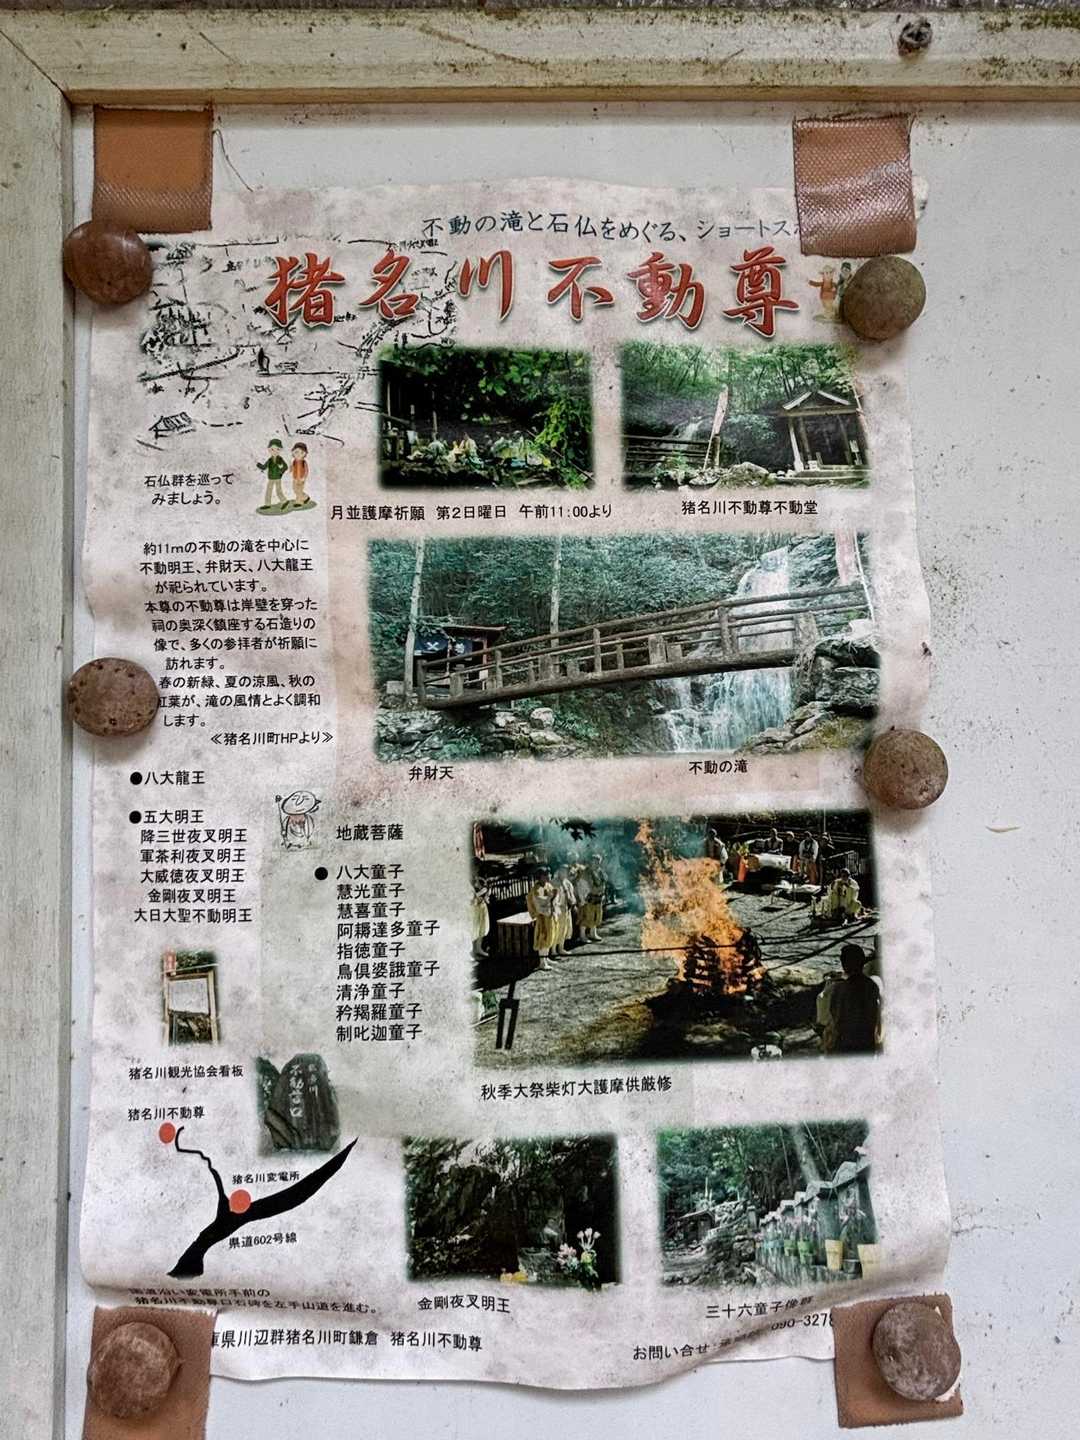 不動の滝と石仏をめぐる、ショートス
猪名川不動尊
石仏群を巡って
みましょう。
月並護摩祈願 第2日曜日 午前11:00より
猪名川不動尊不動堂
約11mの不動の滝を中心に
不動明王、弁財天、八大龍王
が祀られています。
本尊の不動尊は岸壁を穿った
祠の奥深く鎮座する石造りの
像で、多くの参拝者が祈願に
訪れます。
春の新緑、夏の涼風、秋の
紅葉が、滝の風情とよく調和
します。
≪猪名川町HPより≫
弁財天
不動の滝
●八大龍王
●五大明王
降三世夜叉明王
軍茶利夜叉明王
大威徳夜叉明王
金剛夜叉明王
大日大聖不動明王
地蔵菩薩
● 八大童子
慧光童子
慧喜童子
阿耨達多童子
指徳童子
烏倶婆誐童子
清浄童子
矜羯羅童子
制吒迦童子
秋季大祭柴灯大護摩供厳修
猪名川観光協会看板
猪名川不動尊
猪名川変電所
県道602号線
沿い変電所手前の
猪名川不動尊口石碑を左手山道を進む。
金剛夜叉明王
三十六童子像群
庫県川辺群猪名川町鎌倉 猪名川不動尊
お問い合せ
090-3278